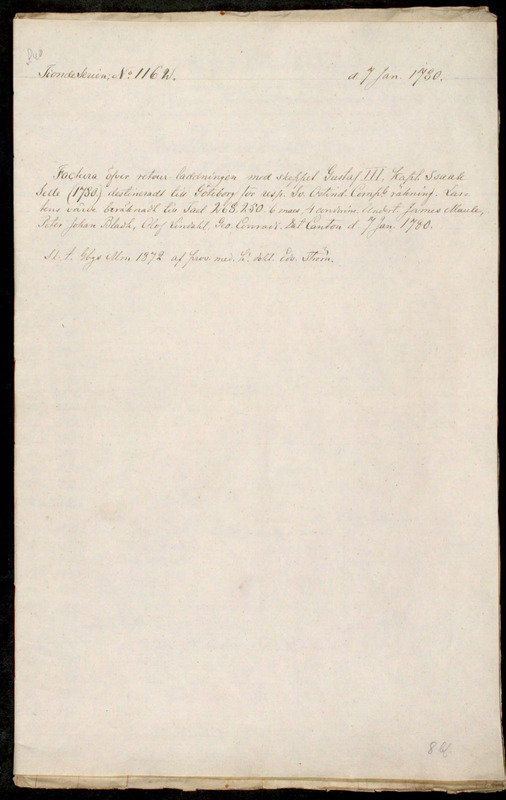 Tionde Serien; No 11692.
d 7 Jan. 1780.
Factura öfver retour laddningen med skeppet Gustaf III. Kapt.
(1780) destineradt till Göteborg för resp. Sv. Ostind. Comp:s räkning. Las-
tens värde beräknadt till Tail 268,250. 6 mas, 4 condrins. Undert. James Maule,
Peter Johan Bladh, Olof Lindahl, Geo. Dat Canton d 7 Jan. 1780.
Sk. t. Gbgs Mm 1872 af prov. med. D:r Edv. Ström.